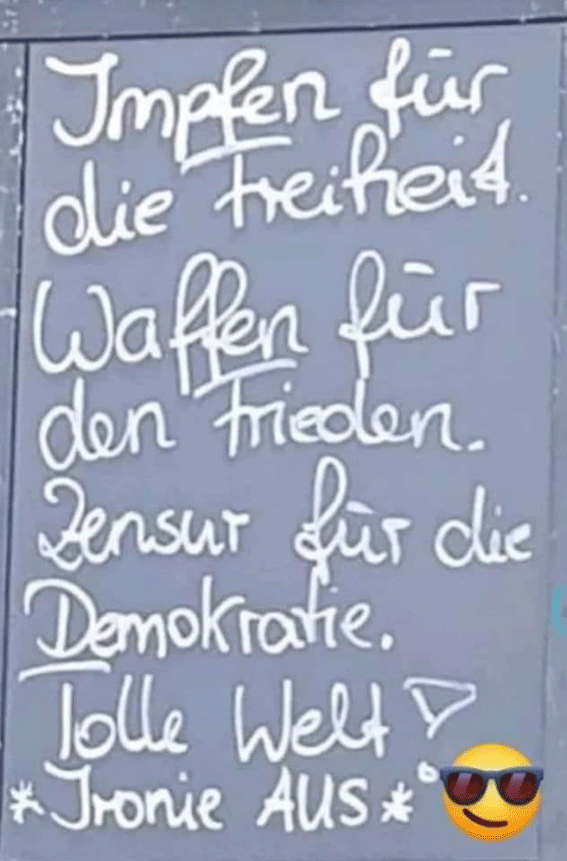 Impfen für
die Freiheit.
Waffen für
den Frieden.
Zensur für die
Demokratie.
Tolle Welt!
*Ironie AUS*